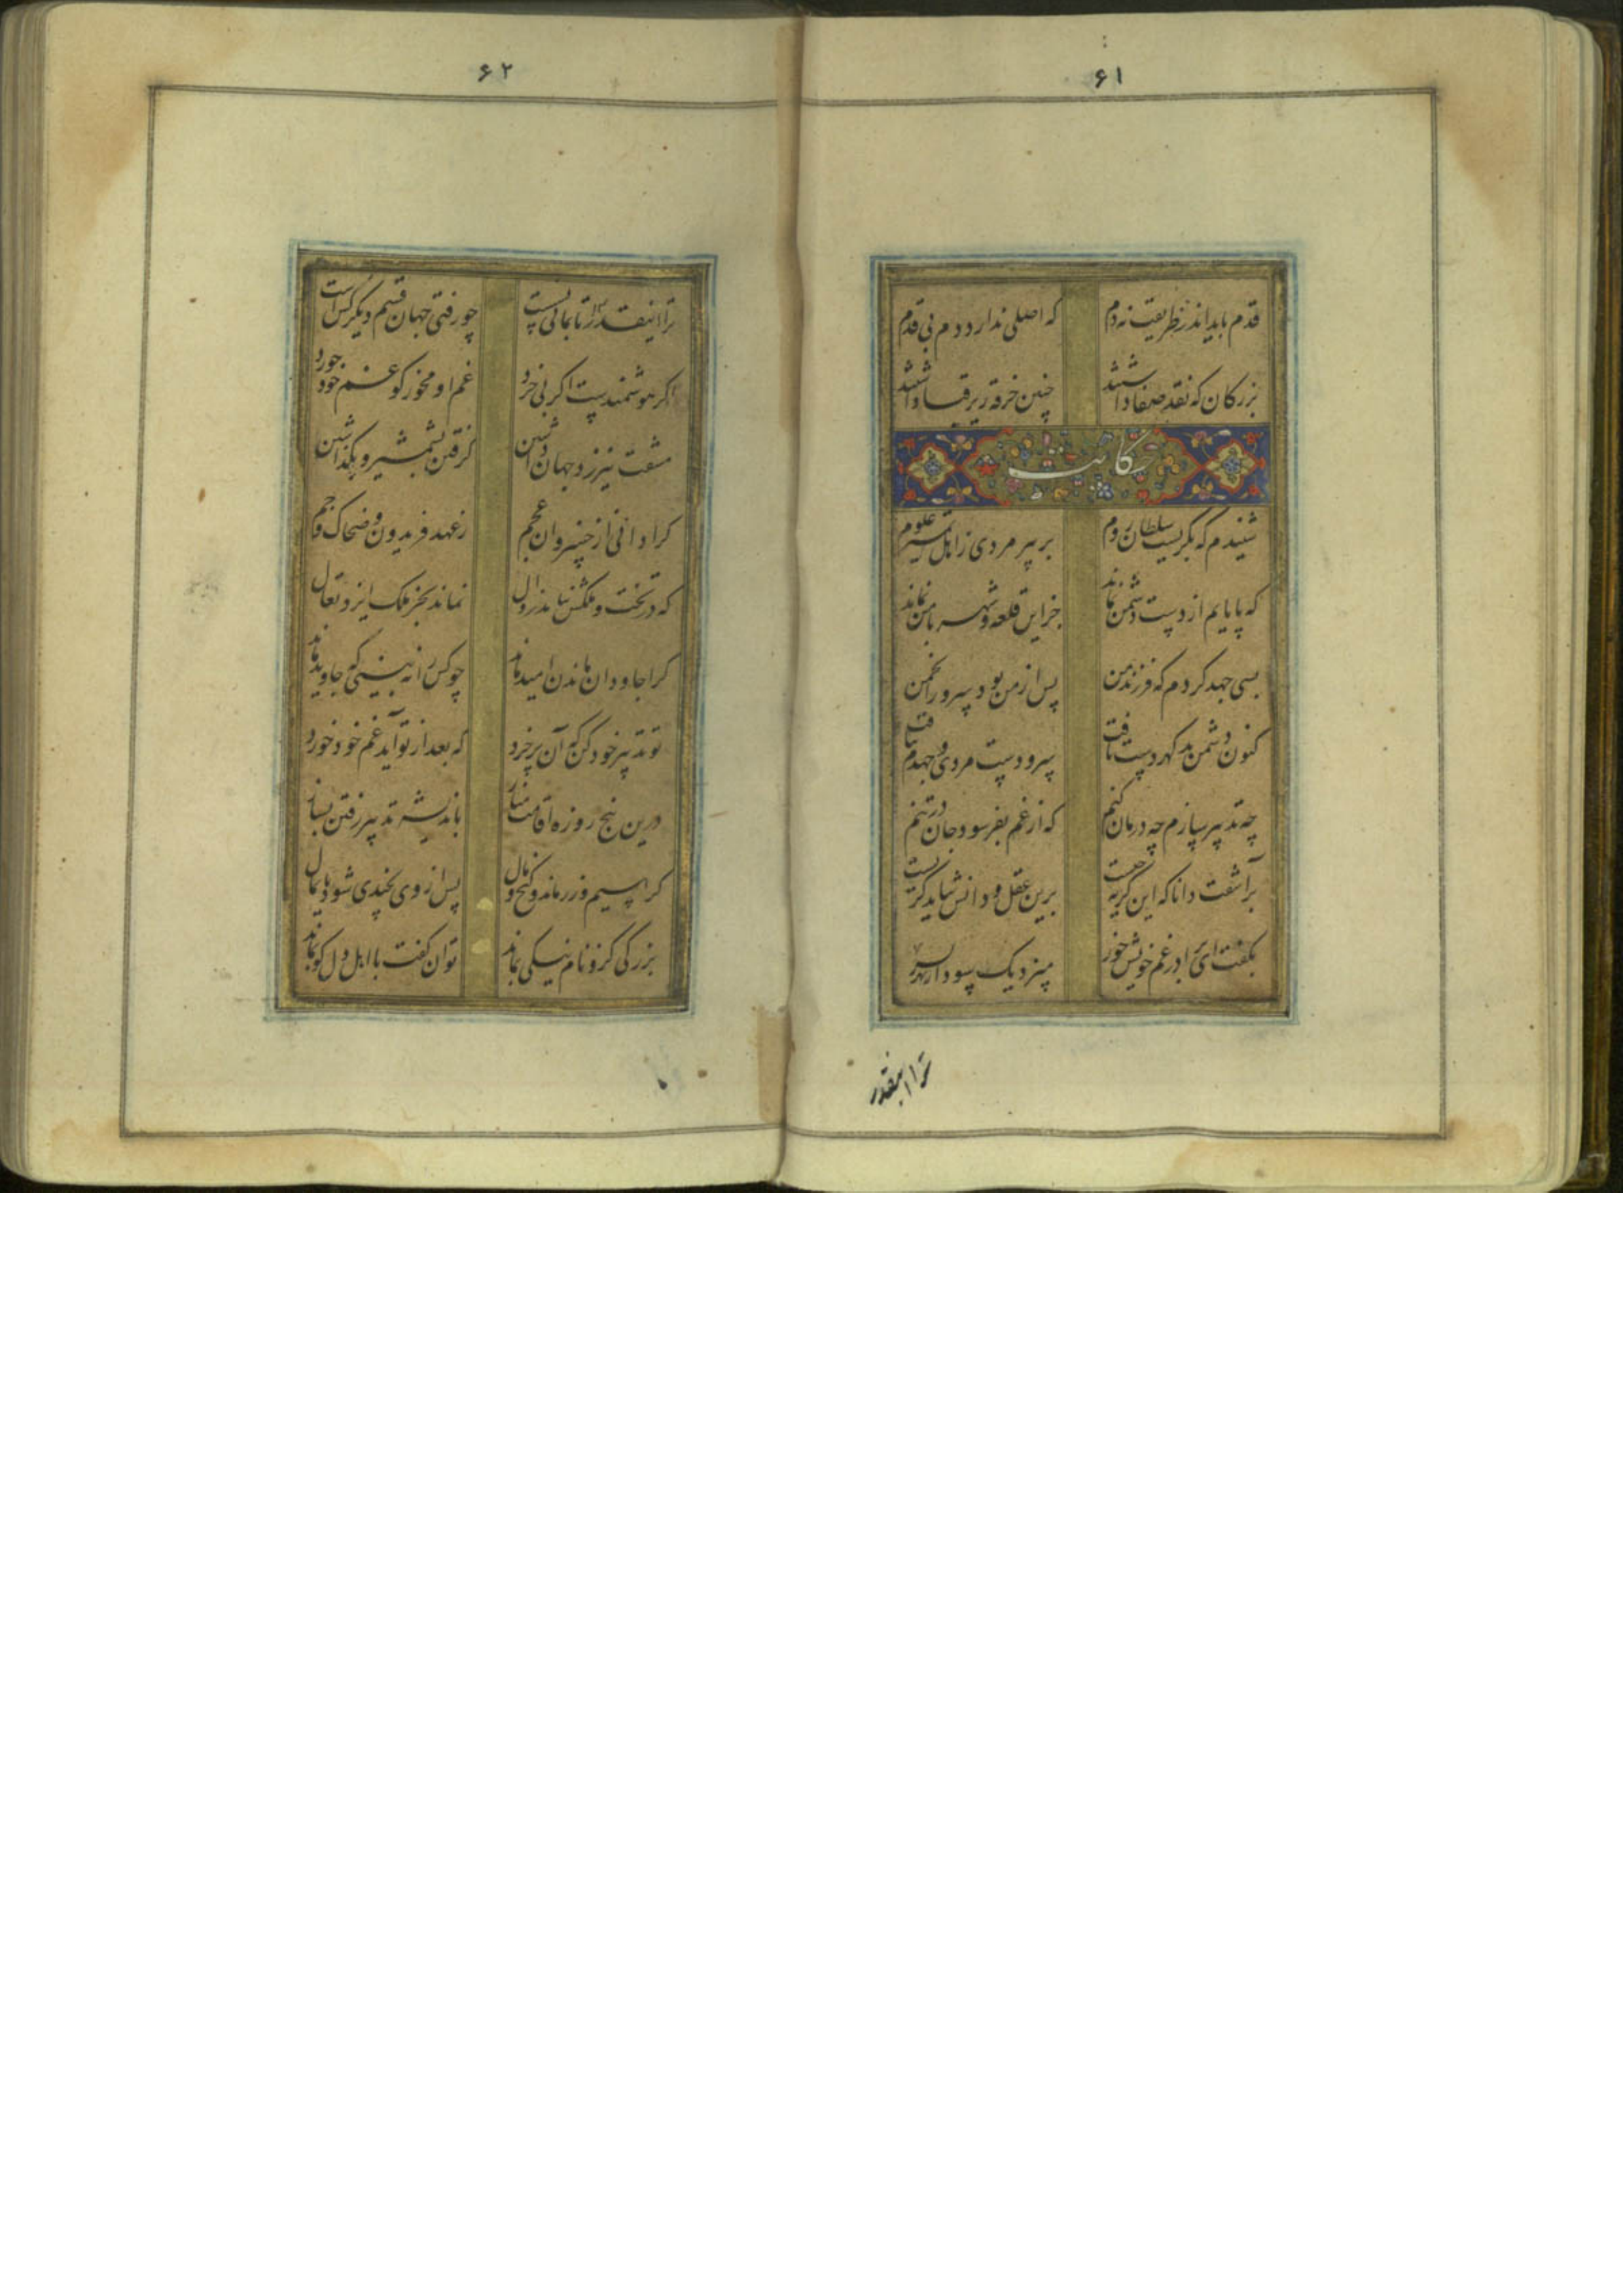 ۶۱
قدم باید اندر طریقت نه دم که اصلی ندارد دم بی قدم
بزرکان که نقد صفا داشتند چنین خرقه زیر قبا داشتند
حکایت
شنیدم که بکریست سلطان روم بر پیر مردی ز اهل علوم
که پایابم از دست دشمن نماند جز این قلعه و شهر با من نماند
بسی جهد کردم که فرزند من پس از من بود سرور انجمن
کنون دشمن بد کهر دست یافت سر و دست مردی و جهدم بتافت
چه تدبیر سازم چه درمان کنم که از غم بفرسود جان در تنم
برآشفت دانا که این کریه چیست برین عقل و دانش بباید کریست
بکفت ای برادر غم خویش خور
ترا اینقدر
۶۲
ترا اینقدر تا بمانی بست چو رفتی جهان قسم دیکر کس است
اکر هوشمندیست اکر بی خرد غم او مخور کو غم خود خورد
مشقت نیرزد جهان داشتن کرفتن بشمشیر و بکذاشتن
کرا دانی از خسروان عجم ز عهد فریدون و ضحاک و جم
که در تخت و ملکش نیامد زوال نماند بجز ملک ایزد تعال
کرا جاودان ماندن امید ماند چو کس را نه بینی که جاوید ماند
تو تدبیر خود کن که آن پر خرد که بعد از تو آید غم خود خورد
درین پنج روزه اقامت مناز باندیشه تدبیر رفتن بساز
کرا سیم و زر ماند و کنج و مال پس از وی بچندی شود پایمال
بزرکی کزو نام نیکی بماند توان کفت با اهل دل کو بماند